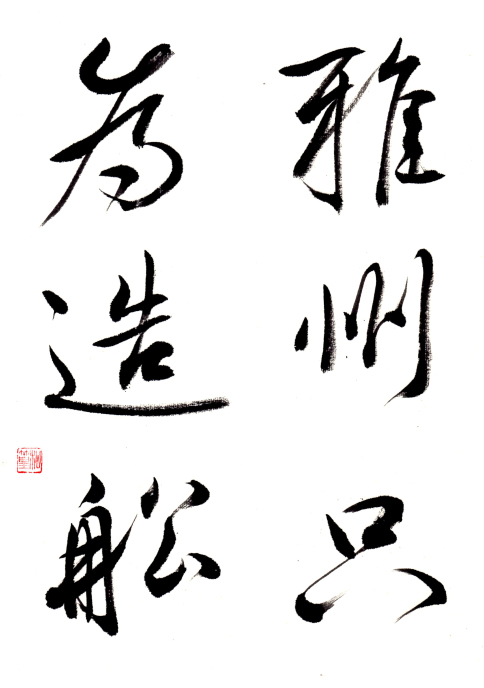 雅州只
為造舩